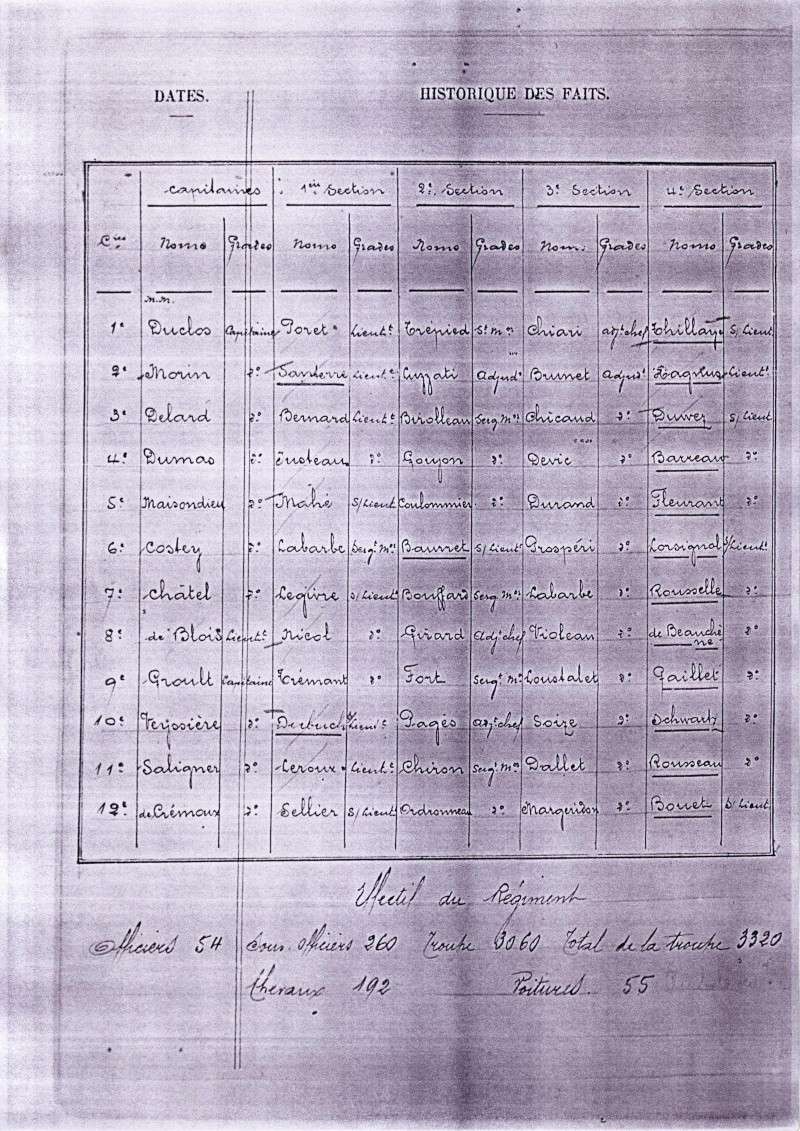 DATES. HISTORIQUE DES FAITS.
Capitaines 1ère Section 2e Section 3e Section 4e Section
Cies Noms Grades Noms Grades Noms Grades Noms Grades Noms Grades
M.M.
1e Duclos Capitaine Poret Lieutt Trépied St Mor Chiari adjt chef Thillaye S/Lieut
2e Morin do Santerre Lieutt Luzzati Adjudt Brunet Adjudt Lieutt
3e Delard do Bernard Lieutt Birolleau Serg Mor Chicaud do Duwez S/Lieut
4e Dumas do Justeau do Goujon do Devic do Barreau do
5e Maisondieu do Mahé S/Lieut Coulommier do Durand do Fleurant do
6e Costey do Labarbe Sergt Mor Baunet S/Lieutt Prospéri do Lorsignol S/Lieutt
7e Châtel do Legivre S/Lieut Bouffard Serg Mor Labarbe do Rousselle do
8e de Blois Lieutt Nicol do Girard Adjt chef Violeau do de Beauchêne do
9e Groult Capitaine Trémant do Fort Sergt Mor Loustalet do Gaillet do
10e Teyssière do Dubuch S/Lieutt Pagès Adjt chef Soize do Schwartz do
11e Saligner do Leroux Lieutt Chiron Sergt Mor Dallet do Rousseau do
12e de Crémoux do Sellier S/Lieut Ordronneau do Margeridon do Bouet S/Lieut
Effectif du Régiment
Officiers 54 Sous officiers 260 Troupe 3060 Total de la troupe 3320
Chevaux 192 Voitures. 55